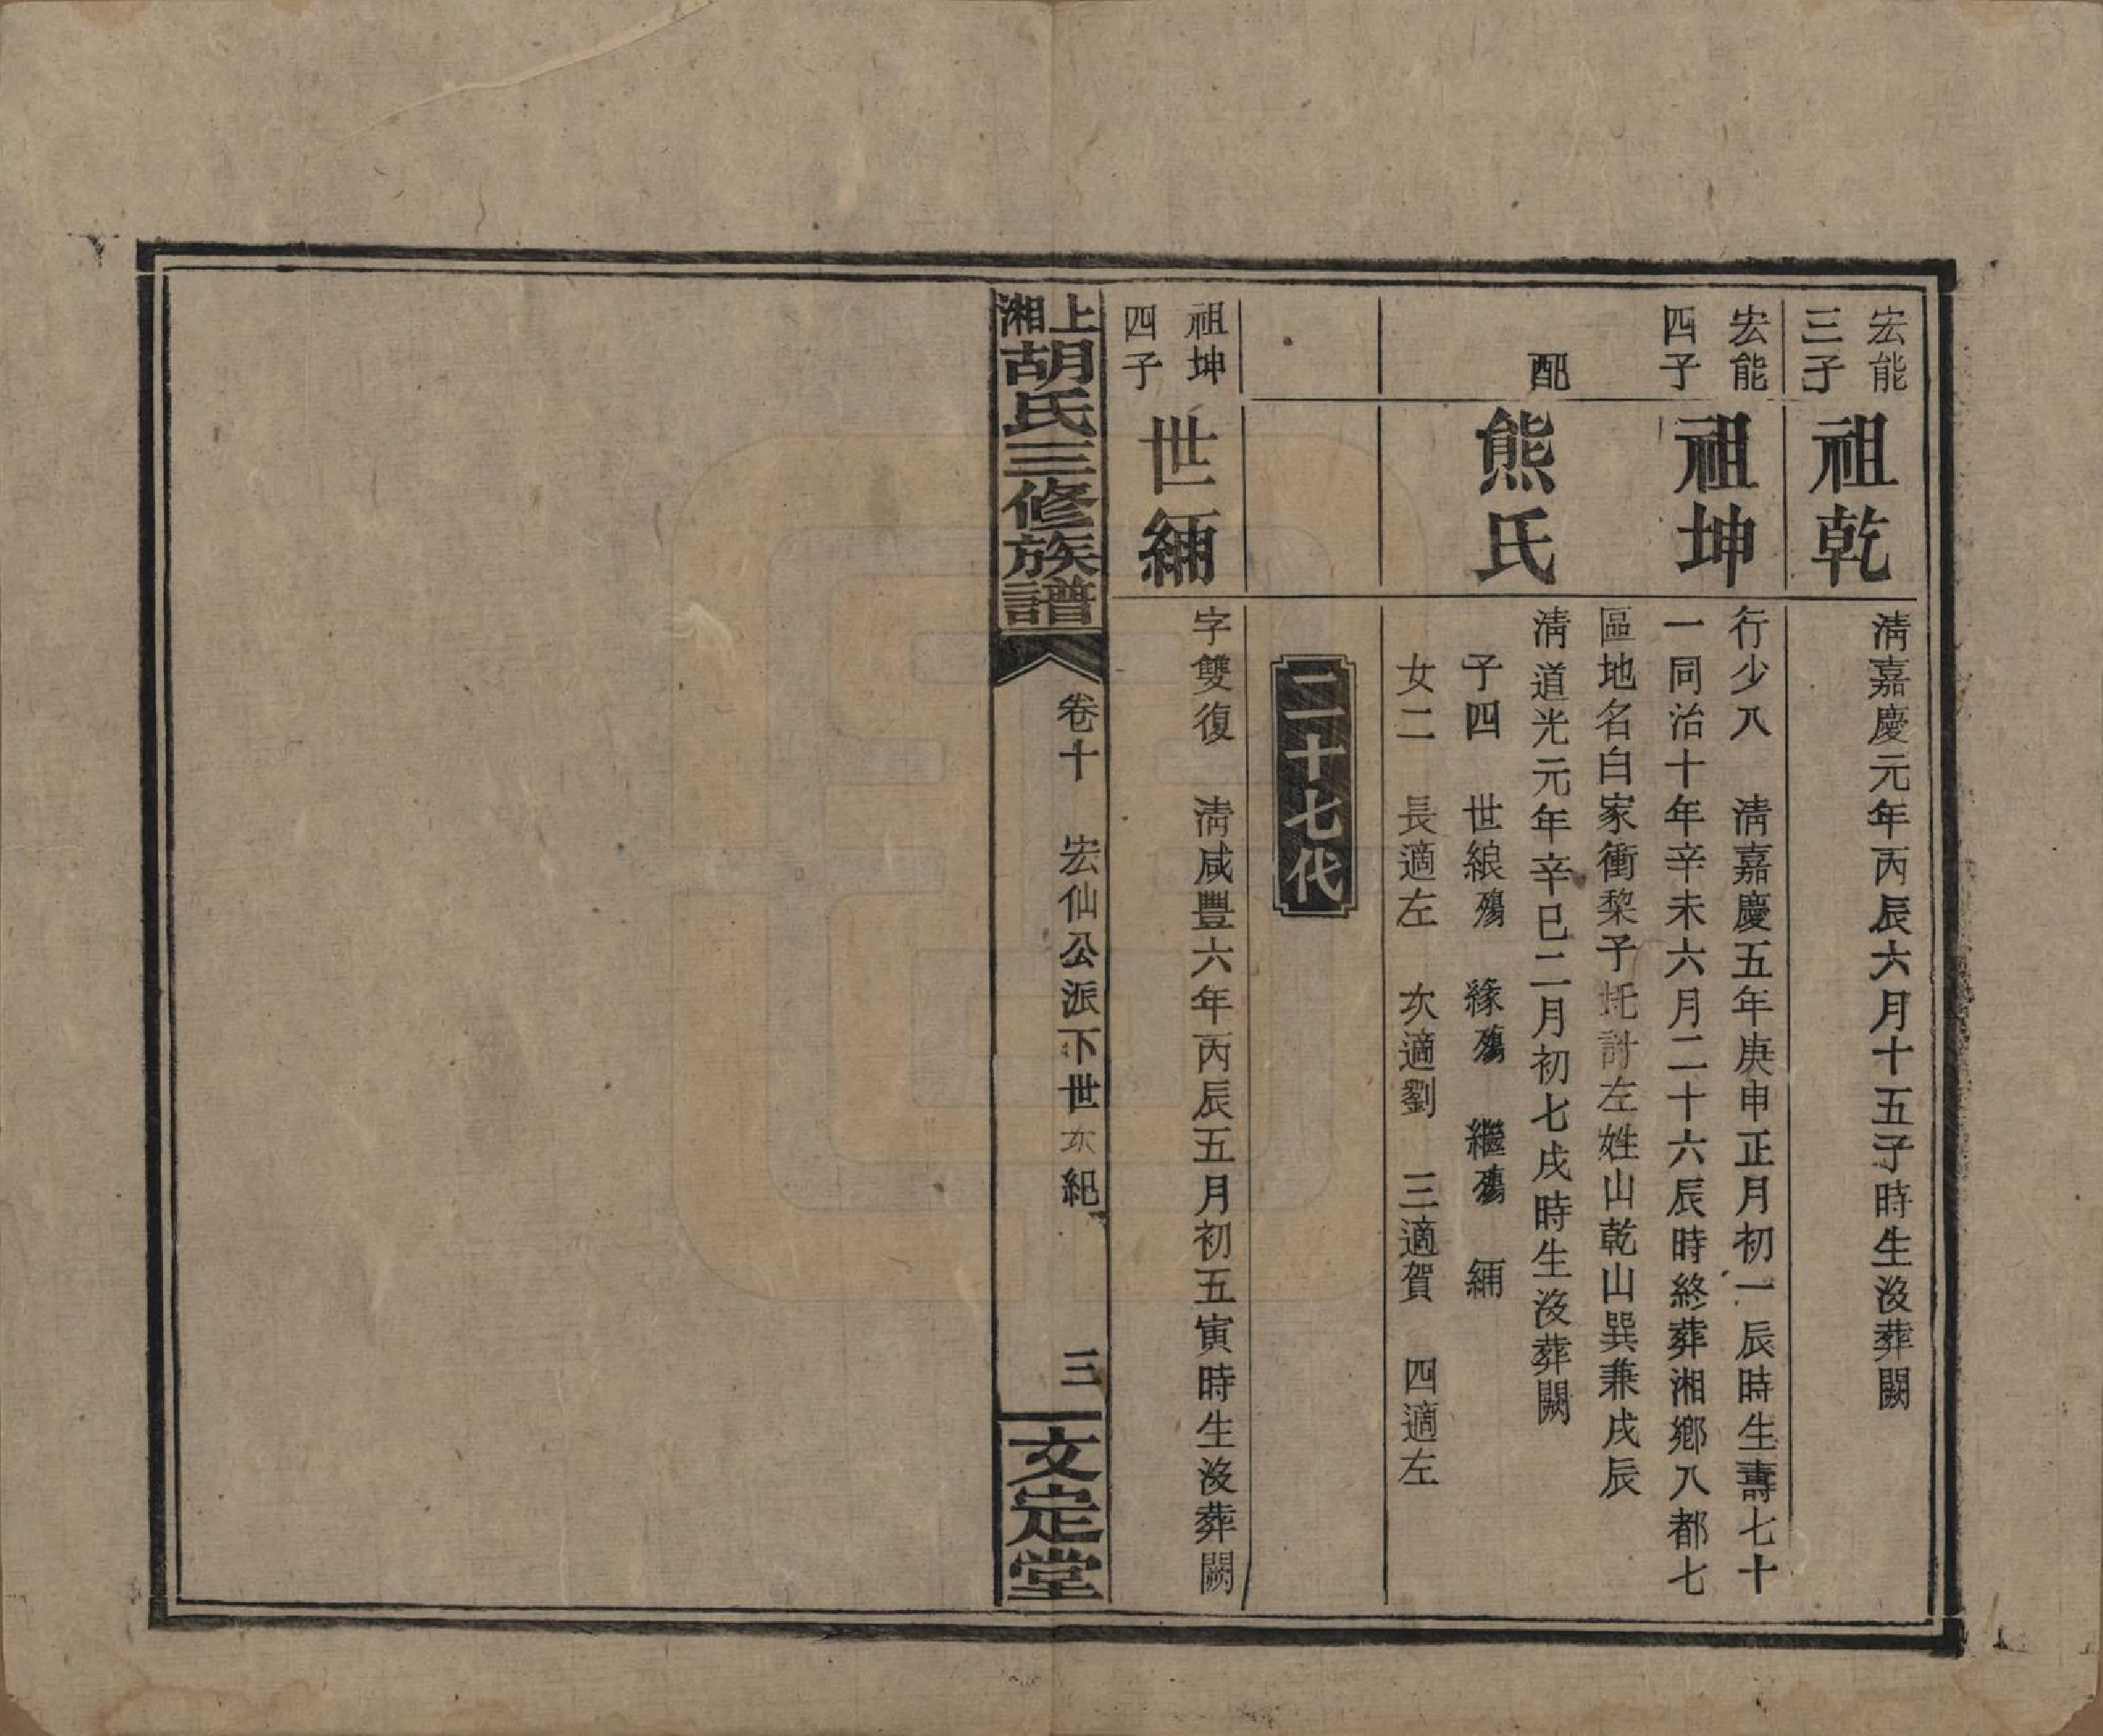 宏能
三子
祖乾
清嘉慶元年丙辰六月十五子時生沒葬闕
宏能
四子
祖坤
行少八 清嘉慶五年庚申正月初一辰時生壽七十
一同治十年辛未六月二十六辰時終葬湘鄉八都七
區地名白家衝棃子圫討左姓山乾山巽兼戌辰
配
熊氏
清道光元年辛巳二月初七戌時生沒葬闕
子四 世綐殤 緣殤 繼殤 緬
女二 長適左 次適劉 三適賀 四適左
二十七代
祖坤
四子
世緬
字雙復 清咸豐六年丙辰五月初五寅時生沒葬闕
上湘胡氏三修族譜
卷十 宏仙公派下世次紀 三
文定堂